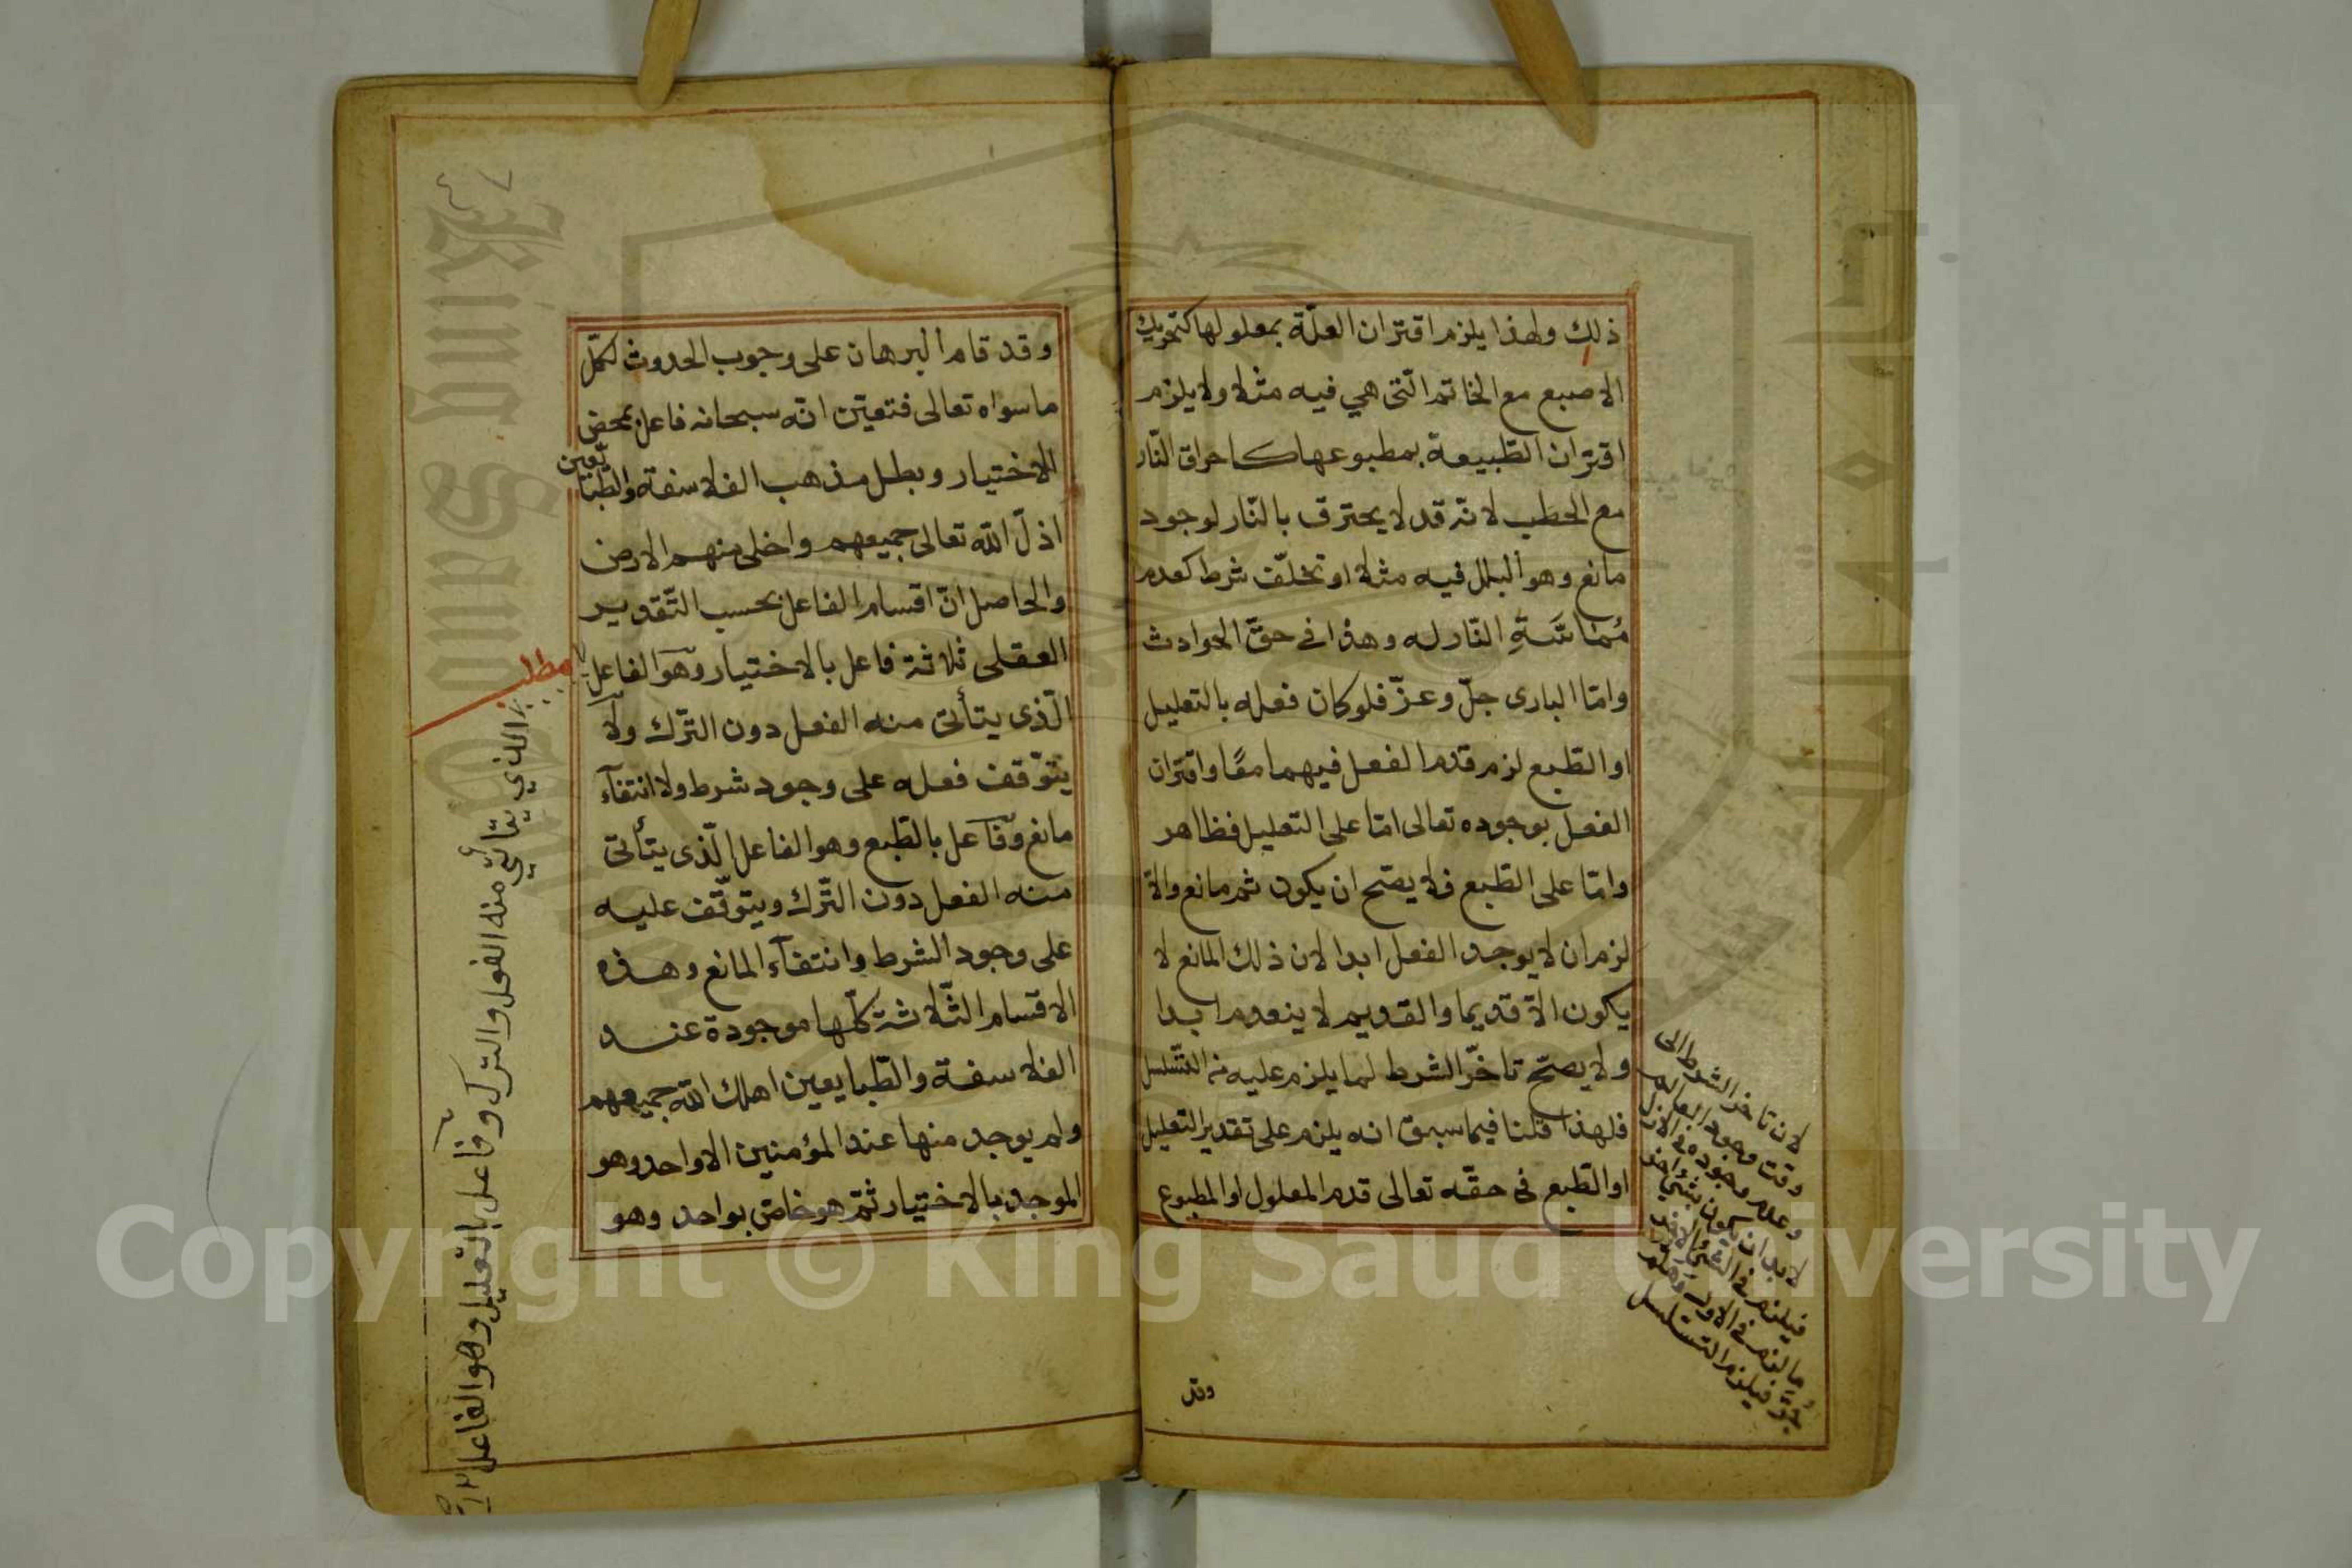 ذلك ولهذا يلزم اقتران العلّة بمعلولها كتحريك
الاصبع مع الخاتم الّتى هي فيه مثلا ولا يلزم
اقتران الطّبيعة بمطبوعها كاحراق النّار
مع الحطب لانّه قد لا يحترق بالنّار لوجود
مانع وهو البلل فيه مثلا او تخلّف شرط كعدم
مُمَاسَّةِ النّار له وهذا فى حقّ الحوادث
وامّا البارى جلّ وعزّ فلو كان فعله بالتعليل
او الطّبع لزم قدم الفعل فيهما معًا واقتران
الفعل بوجوده تعالى امّا على التعليل فظاهر
وامّا على الطّبع فلا يصحّ ان يكون ثم مانع والاّ
لزم ان لا يوجد الفعل ابدا لان ذلك المانع لا
يكون الاّ قديما والقديم لا ينعدم ابدا
ولا يصحّ تاخّر الشرط لما يلزم عليه من التّسلسل
فلهذا قلنا فيما سبق انه يلزم على تقدير التعليل
او الطّبع فى حقّه تعالى قدم المعلول او المطبوع
لان تاخر الشرط الى
وقت وجود العالم
وعدم وجوده فى الازل
لا بد ان يكون بشئ اخر
فيلزم فى الشئ الاخر
ما لزم فى الاول وهلم
جرّا فيلزم التسلسل
وقد
وقد قام البرهان على وجوب الحدوث لكلّ
ما سواه تعالى فتعيّن انّه سبحانه فاعل بمحض
الاختيار وبطل مذهب الفلاسفة والطّبايعين
اذلّ الله تعالى جميعهم واخلى منهم الارض
والحاصل انّ اقسام الفاعل بحسب التّقدير
العقلى ثلاثة فاعل بالاختيار وهو الفاعل
الّذى يتأتى منه الفعل دون الترّك ولا
يتوّقف فعله على وجود شرط ولا انتفآء
مانع وفاعل بالطّبع وهو الفاعل الّذى يتأتى
منه الفعل دون التّرك ويتوقّف عليه
على وجود الشرط وانتفآء المانع وهذه
الاقسام الثّلاثة كلّها موجودة عند
الفلاسفة والطّبايعين اهلك الله جميعهم
ولم يوجد منها عند المؤمنين الا واحد وهو
الموجد بالاختيار ثمّ هو خاصّ بواحد وهو
مطلب
الذي يتأتّي منه الفعل والترك وفاعل بالتعليل وهو الفاعل
Copyright © King Saud University